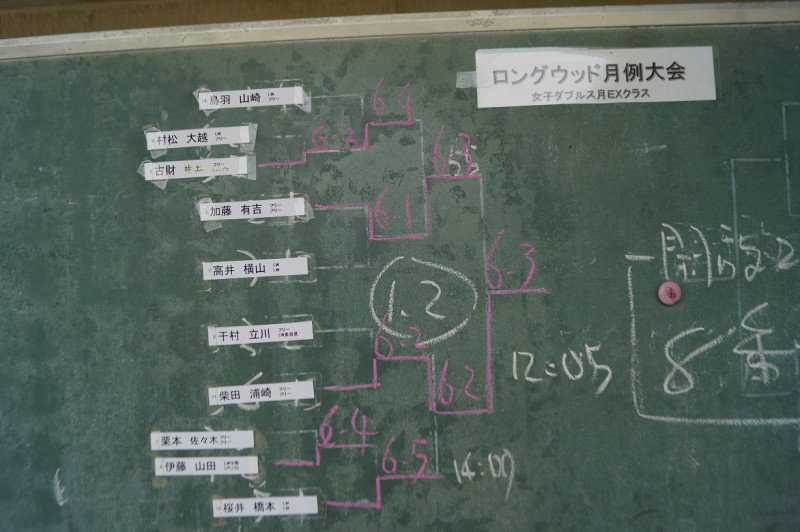 ロングウッド月例大会
女子ダブルス月EXクラス
鳥羽 山崎
村松 大越
古財 井上
加藤 有吉 フリー フリー
高井 横山
千村 立川 フリー
柴田 浦崎 フリー フリー
栗本 佐々木 フリー フリー
伊藤 山田
桜井 橋本
6-4
6-2
6-3
6-1
6-3
1.2
6-2
6-2
12:05
6-4
6-5
14:00
8